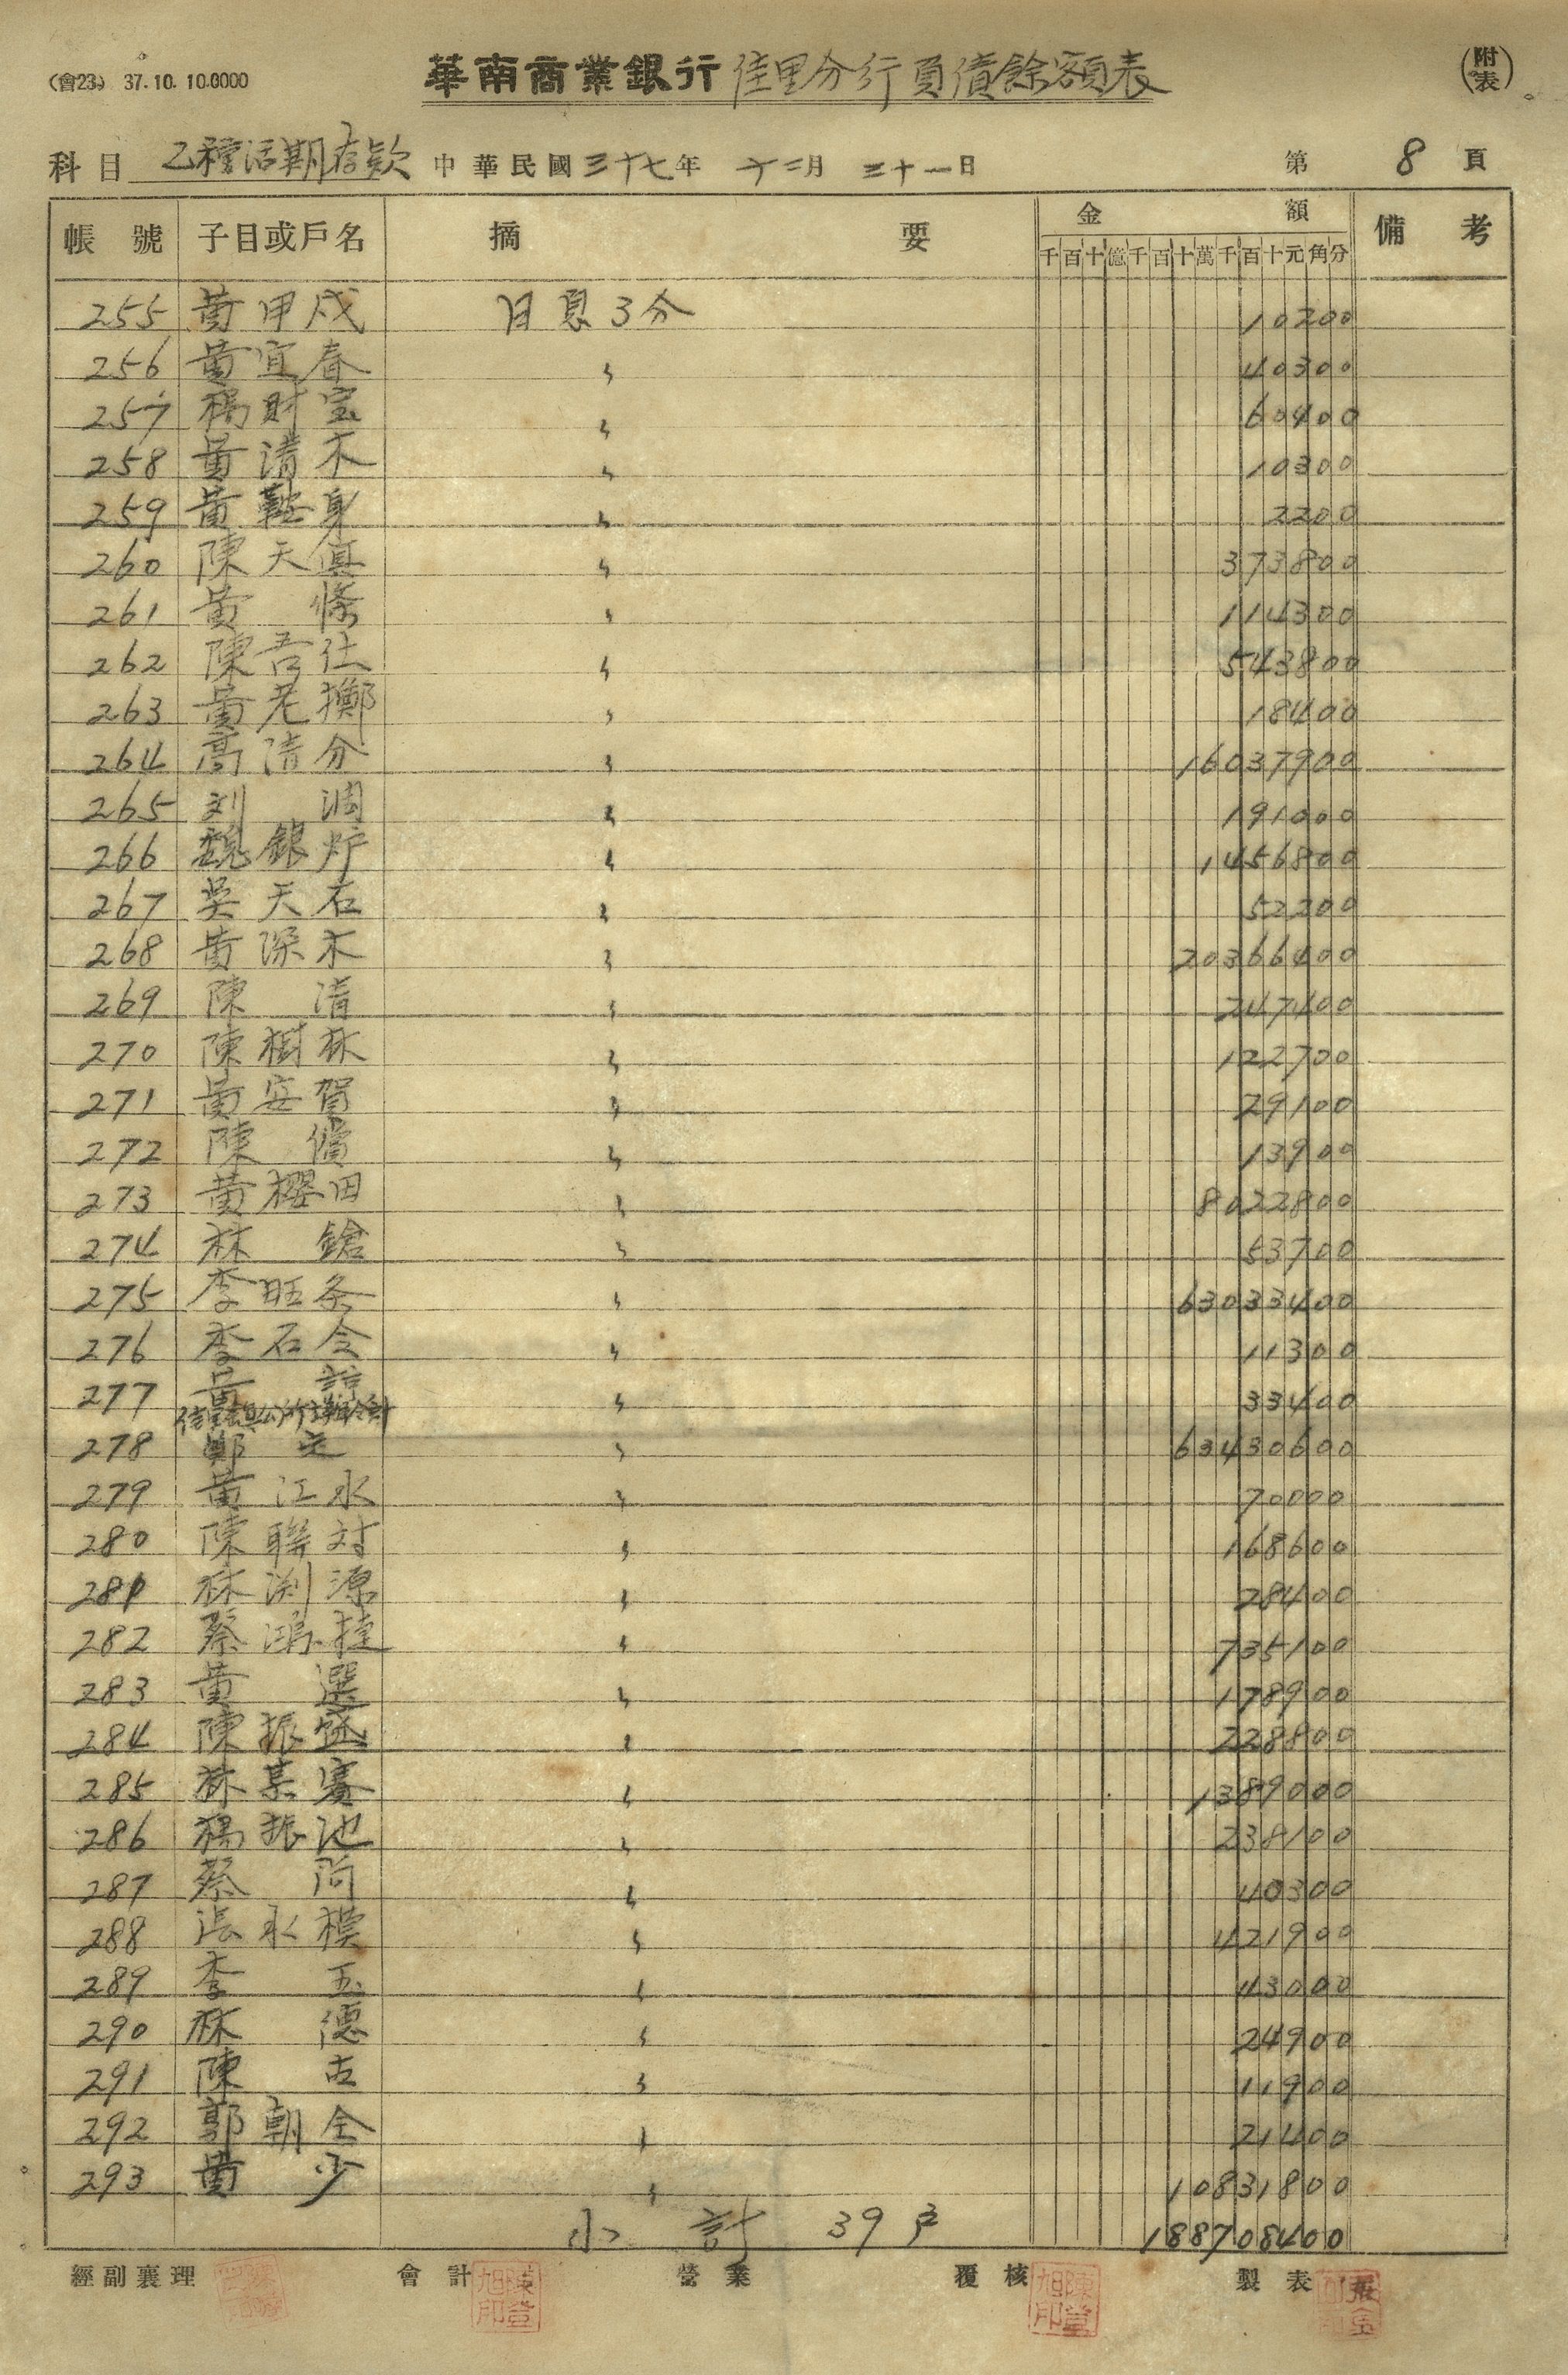 (會23) 37.10.10.0000
華南商業銀行 佳里分行負債餘額表 (附表)
科目 乙種活期存款 中華民國三十七年 十二月 三十一日 第 8 頁
帳號 子目或戶名 摘要 金額 備考
千百十億千百十萬千百十元角分
255 黃甲戍 日息3分 10200
256 黃宜春 〃 40300
257 楊財宝 〃 60400
258 黃清木 〃 10300
259 黃鞍身 〃 2200
260 陳天真 〃 373800
261 黃條 〃 114300
262 陳吾仕 〃 543800
263 黃老擲 〃 18400
264 高清分 〃 16037900
265 刘調 〃 191000
266 魏銀炉 〃 1456800
267 吳天石 〃 52200
268 黃深木 〃 20366400
269 陳清 〃 247400
270 陳樹林 〃 122700
271 黃安賀 〃 29100
272 陳償 〃 13900
273 黃櫻田 〃 8022800
274 林鎗 〃 53700
275 李旺条 〃 63033400
276 李石令 〃 11300
277 黃 〃 33400
278 鄭 〃 63430600
279 黃江永 〃 70000
280 陳聯対 〃 168600
281 林渕源 〃 28400
282 蔡鴻捷 〃 735100
283 黃選 〃 178900
284 陳振盛 〃 228800
285 林某賽 〃 1389000
286 楊振池 〃 238100
287 蔡阿 〃 40300
288 張永模 〃 421900
289 李玉 〃 43000
290 林德 〃 24900
291 陳古 〃 11900
292 郭朝全 〃 21400
293 黃少 〃 10831800
小計 39戶 188708400
經副襄理 會計 營業 覆核 製表